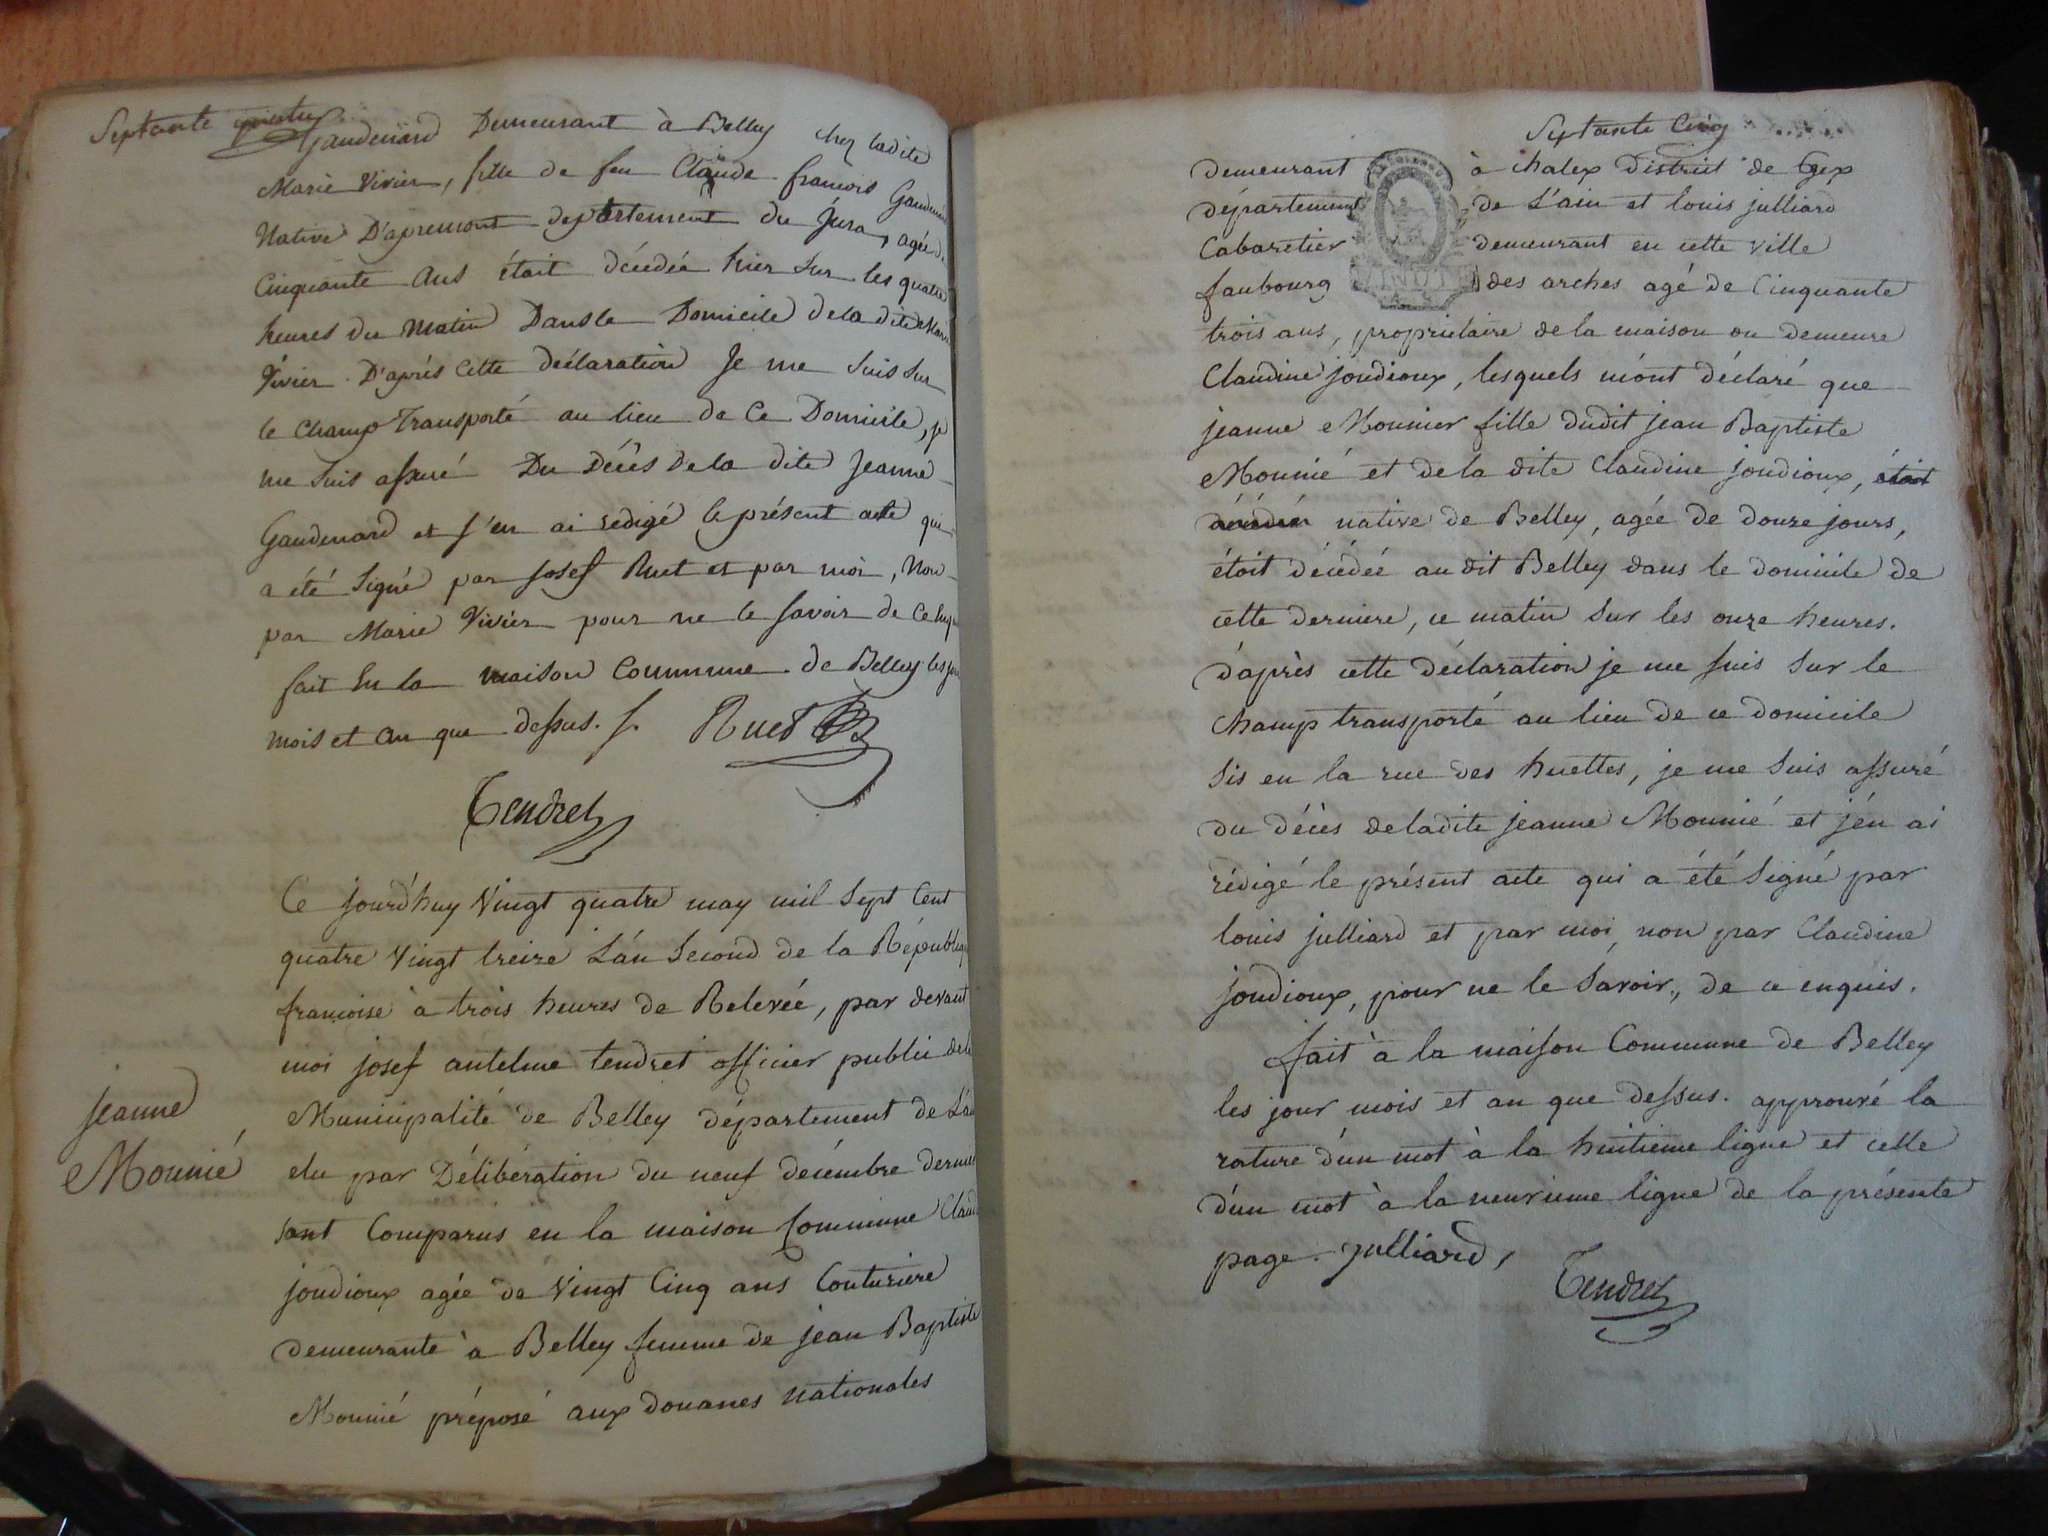 Septante quatre
Gaudenard Demeurant à Belley chez ladite
Marie Vivier, fille de feu Claude francois
Native D'apremont departement du Jura, agée de
Cinquante ans était décédée hier sur les quatre
heures du Matin Dans le Domicile de la dite Marie
Vivier. D'après Cette déclaration Je me Suis Sur
le Champ Transporté au lieu de Ce Domicile, je
me suis assuré Du Décès De la dite Jeanne
Gaudenard et j'en ai redigé le présent acte qui
a été Signé par Josef Ruet et par moi, Non
par Marie Vivier pour ne le savoir de Ce
fait En la maison Commune de Belley les
mois et an que dessus. Ruet
Tendret
Ce jourd'huy Vingt quatre may mil Sept Cent
quatre Vingt treize L'án Second de la
françoise à trois heures de Relevée, par devant
moi josef antelme tendret officier public de la
Jeanne
Municipalité de Belley département de
Mounié
elu par Délibération du neuf decémbre dernier
sont Comparus en la maison Commune
joudioux agée de Vingt Cinq ans Couturière
demeurante à Belley femme de jean Baptiste
Mounié préposé aux douanes nationales
Septante Cinq
demeurant à Chalex District de Gex
département de L'ain et louis julliard
Cabaretier demeurant en cette ville
faubourg des arches agé de Cinquante
trois ans, propriétaire de la maison ou demeure
Claudine joudioux, lesquels m'ont déclaré que
jeanne Mounier fille dudit jean Baptiste
Mounié et de la dite Claudine joudioux, étoit
décédée native de Belley, agée de douze jours,
étoit décédée au dit Belley dans le domicile de
cette derniere, ce matin sur les onze heures.
d'après cette déclaration je me suis sur le
champ transporté au lieu de ce domicile
sis en la rue des huettes, je me suis assuré
du décès de ladite jeanne Mounié et j'en ai
rédigé le présent acte qui a été Signé par
louis julliard et par moi, non par Claudine
joudioux, pour ne le Savoir, de ce enquis.
fait à la maison Commune de Belley
les jour mois et an que dessus. approuvé la
rature d'un mot à la huitieme ligne et celle
d'un mot à la neuvieme ligne de la présente
page. julliard,
Tendret